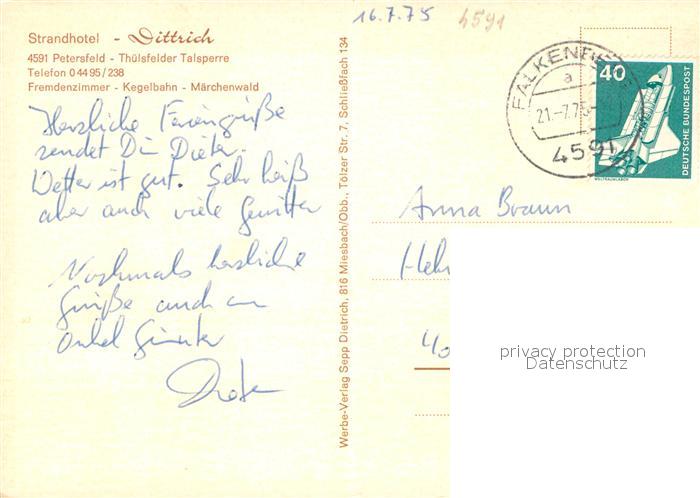 16.7.75 4591
Strandhotel - Dittrich
4591 Petersfeld - Thülsfelder Talsperre
Telefon 0 44 95 / 238
Fremdenzimmer - Kegelbahn - Märchenwald
Herzliche Feriengrüße
sendet Dir Dieter.
Wetter ist gut. Sehr heiß
aber auch viele Gewitter
Nochmals herzliche
Grüße auch an
Onkel Günter
Dieter
Werbe-Verlag Sepp Dietrich, 816 Miesbach/Obb., Tölzer Str. 7, Schließfach 134
FALKENB
a
21.-7.75
4591
40
DEUTSCHE BUNDESPOST
WELTRAUMLABOR
Anna Braun
Hehr
40
privacy protection
Datenschutz